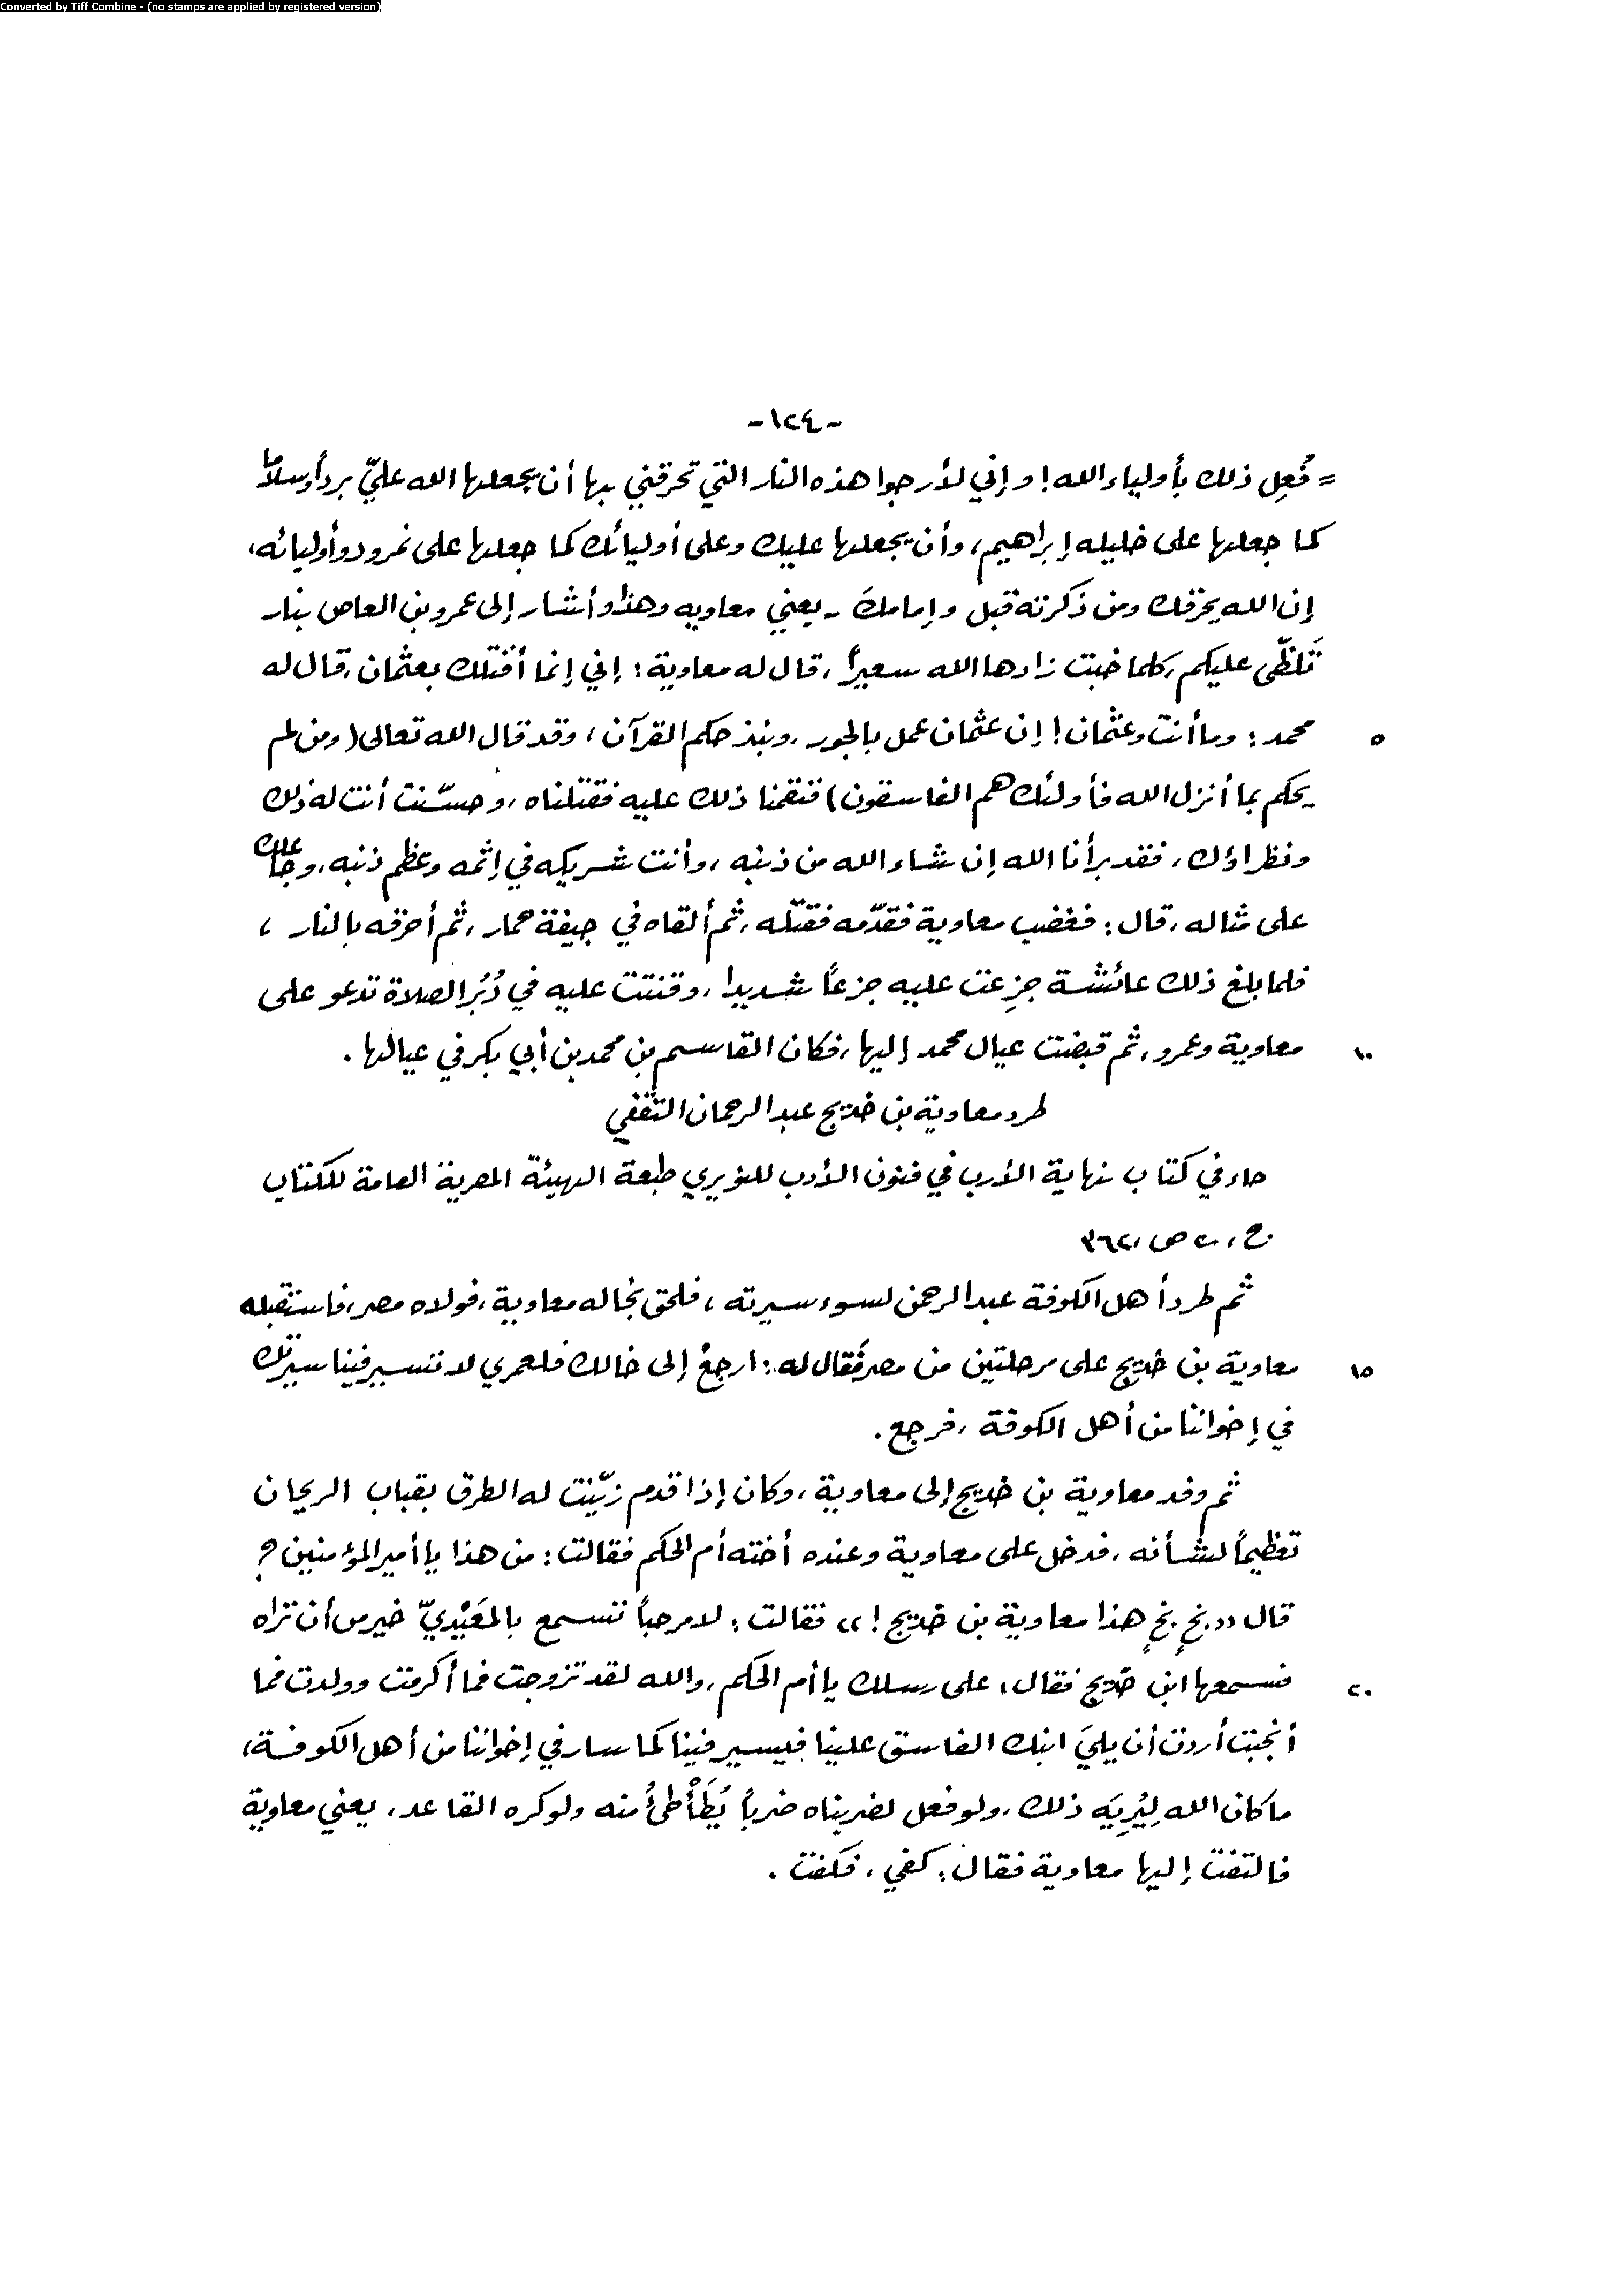 Converted by Tiff Combine - (no stamps are applied by registered version)
-١٢٤-
= فُعِل ذلك بأولياء الله! وإني لأرجوا هذه النار التي تحرقني بها أن يجعلها الله عليّ برداً وسلاماً
كما جعلها على خليله إبراهيم، وأن يجعلها عليك وعلى أوليائك كما جعلها على نمرود وأوليائه،
إن الله يحرقك ومن ذكرته قبل وإمامك - يعني معاويه وهذا وأشار إلى عمرو بن العاص بنار
تَلظّى عليكم، كلما خبت زادها الله سعيراً، قال له معاوية: إني إنما أقتلك بعثمان، قال له
٥ محمد: وما أنت وعثمان! إن عثمان عمل بالجور، ونبذ حكم القرآن، وقد قال الله تعالى (ومن لم
يحكم بما أنزل الله فأولئك هم الفاسقون) فنقمنا ذلك عليه فقتلناه، وحسّنت أنت له ذلك
ونظراؤك، فقد برأنا الله إن شاء الله من ذنبه، وأنت شريكه في إثمه وعظم ذنبه، وجاعلك
على مثاله، قال: فغضب معاوية فقدّمه فقتله، ثم ألقاه في جيفة حمار، ثم أحرقه بالنار،
فلما بلغ ذلك عائشة جزِعت عليه جزعاً شديدا، وقنتت عليه في دُبُر الصلاة تدعو على
١٠ معاوية وعمرو، ثم قبضت عيال محمد إليها، فكان القاسم بن محمد بن أبي بكر في عيالها.
طرد معاوية بن خديج عبد الرحمان الثقفي
جاء في كتاب نهاية الأرب في فنون الأدب للنويري طبعة الهيئة المصرية العامة للكتاب
ج، ٢٠ ص، ٣٦٢
ثم طرد أهل الكوفة عبد الرحمن لسوء سيرته، فلحق بخاله معاوية، فولاه مصر، فاستقبله
١٥ معاوية بن خديج على مرحلتين من مصر فَقال له: ارجعْ إلى خالك فلعمري لا تسير فينا سيرتك
في إخواننا من أهل الكوفة، فرجع.
ثم وفد معاوية بن خديج إلى معاوية، وكان إذا قدم زيّنت له الطرق بقباب الريحان
تعظيماً لشأنه، فدخل على معاوية وعنده أخته أم الحكم فقالت: من هذا يا أمير المؤمنين؟
قال «بخٍ بخٍ هذا معاوية بن خديج!» فقالت: لا مرحباً تسمع بالمعَيْديّ خير من أن تراه
٢٠ فسمعها ابن خديج فقال: على رسلك يا أم الحكم، والله لقد تزوجت فما أكرمت وولدت فما
أنجبت أردت أن يليَ ابنك الفاسق علينا فيسير فينا كما سار في إخواننا من أهل الكوفة،
ما كان الله لِيُرِيَه ذلك، ولو فعل لضربناه ضرباً يُطَأْطئُ منه ولو كره القاعد، يعني معاوية
فالتفت إليها معاوية فقال: كفي، فكفت.